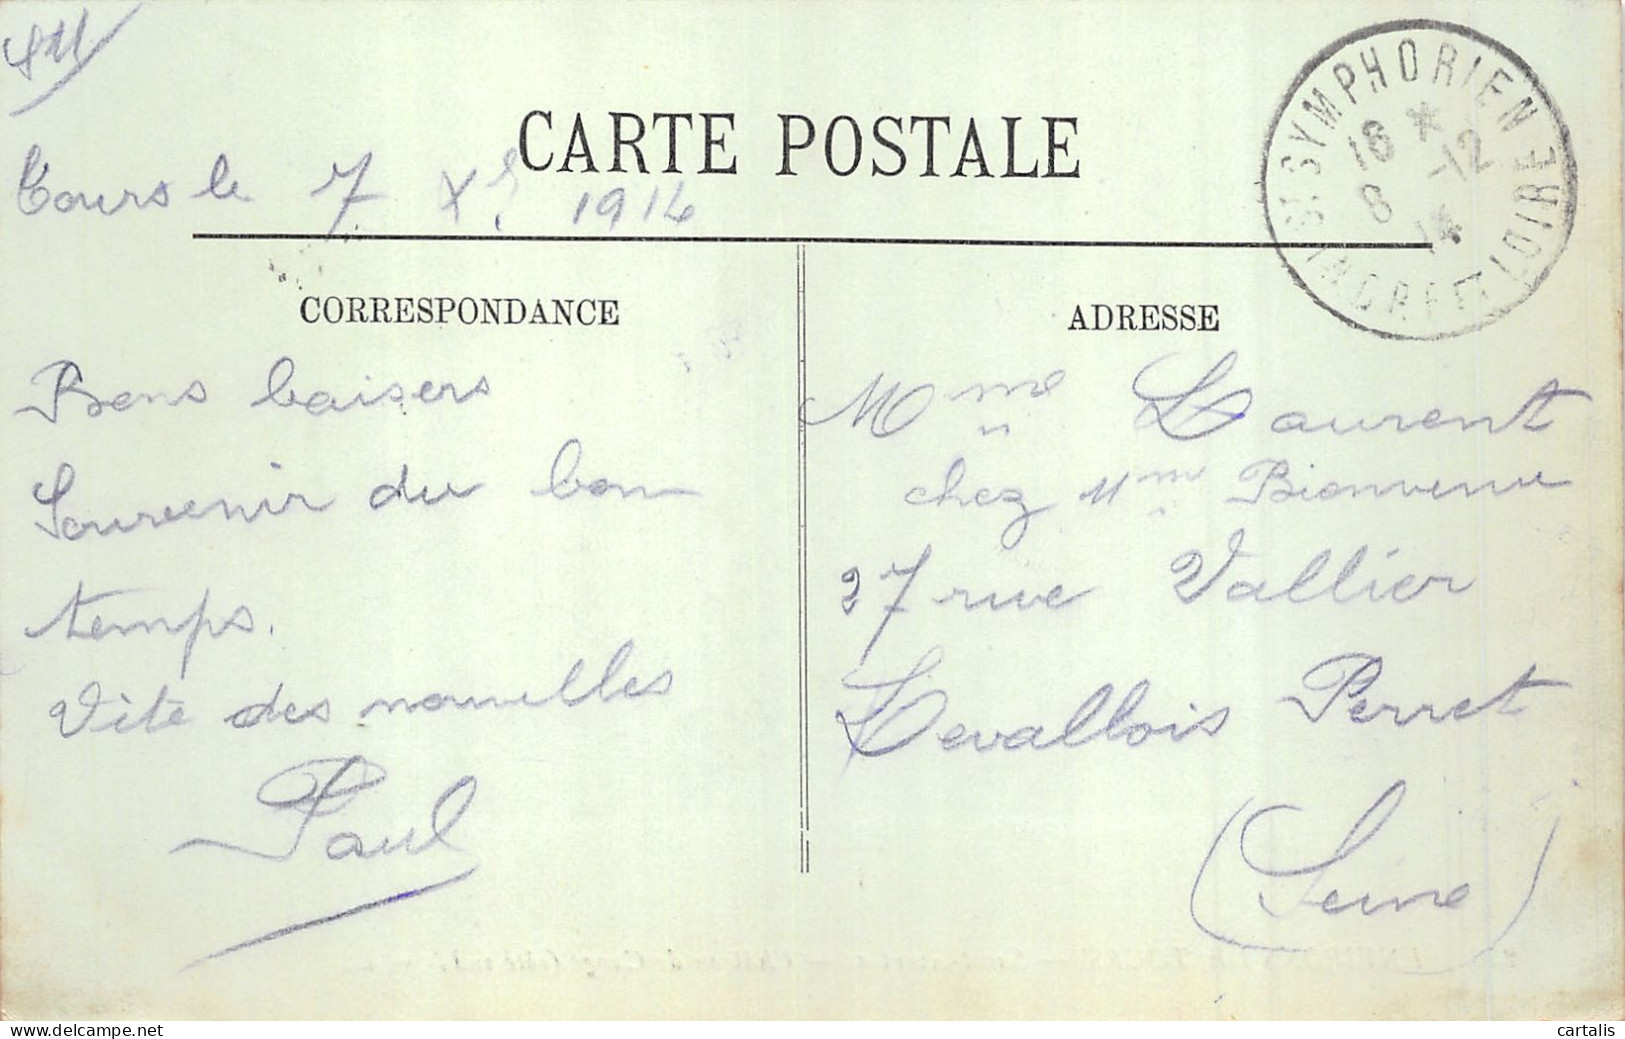 SM
CARTE POSTALE
Tours le 7 Xbre 1914
ST SYMPHORIEN
18 * -12
8 14
INDRE ET LOIRE
CORRESPONDANCE
Bons baisers
Souvenir du bon
temps.
Vite des nouvelles
Paul
ADRESSE
Mme Laurent
chez Mme Bienvenu
27 rue Vallier
Levallois Perret
(Seine)
cartalis